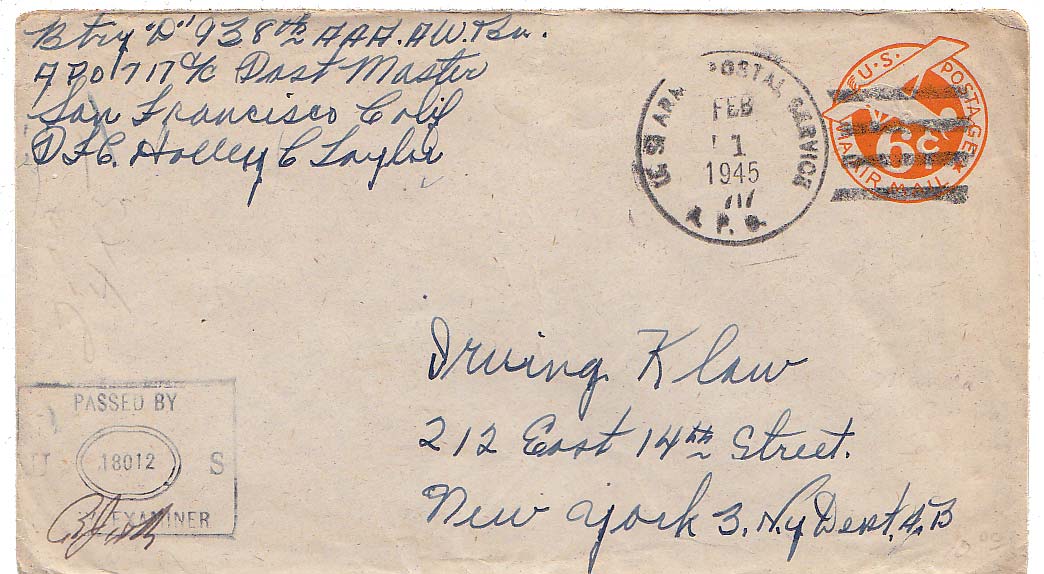 Btry "D" 938th AAA. AW. Bn.
APO 717 c/o Post Master
San Francisco Calif
Pfc. Holley C Taylor
U. S. ARMY POSTAL SERVICE
FEB
1
1945
717
A. P. O.
U.S. POSTAGE
6c
VIA AIR MAIL
Irving Klaw
212 East 14th Street.
New York 3. N.y Dept. 4.B
PASSED BY
U 18012 S
EXAMINER